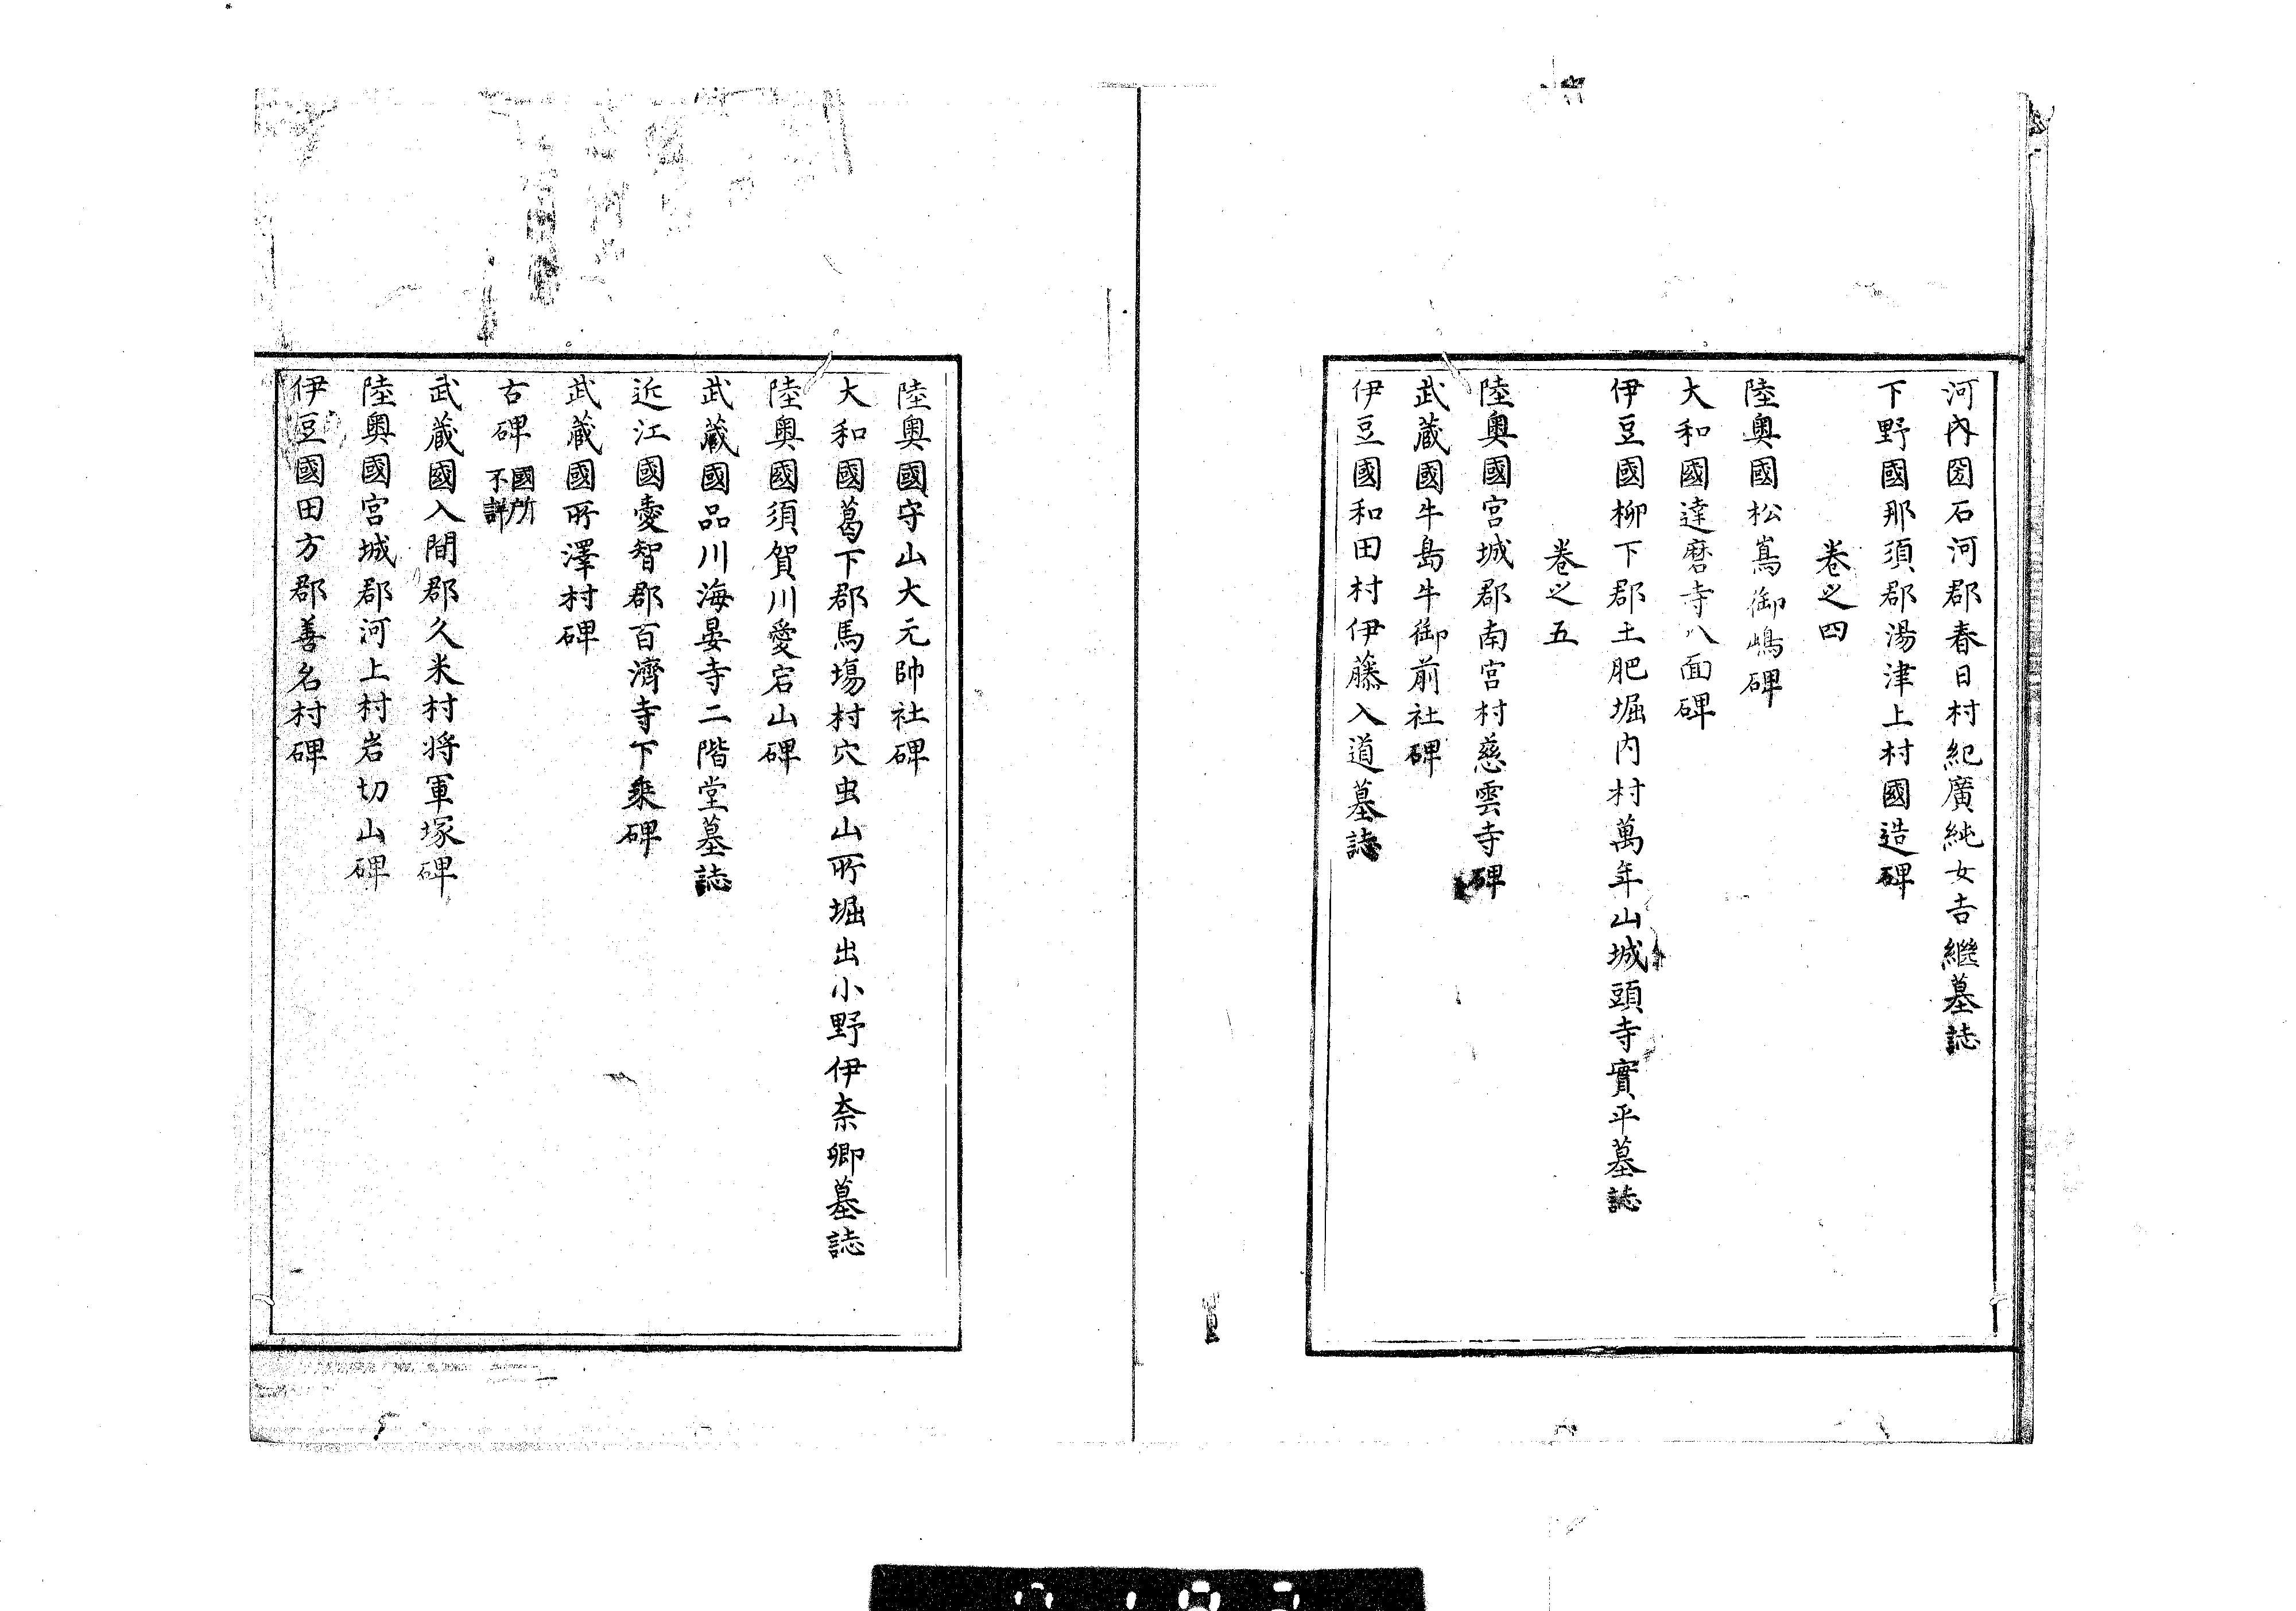 河內國石河郡春日村紀廣純女吉繼墓誌
下野國那須郡湯津上村國造碑
卷之四
陸奧國松嶌御嶋碑
大和國達磨寺八面碑
伊豆國柳下郡土肥堀内村萬年山城頭寺實平墓誌
卷之五
陸奧國宮城郡南宮村慈雲寺碑
武藏國牛島牛御前社碑
伊豆國和田村伊藤入道墓誌
陸奧國守山大元帥社碑
大和國葛下郡馬塲村穴虫山所堀出小野伊奈卿墓誌
陸奧國須賀川愛宕山碑
武藏國品川海晏寺二階堂墓誌
近江國愛智郡百濟寺下乘碑
武藏國所澤村碑
古碑 國所不詳
武藏國入間郡久米村将軍塚碑
陸奧國宮城郡河上村岩切山碑
伊豆國田方郡善名村碑